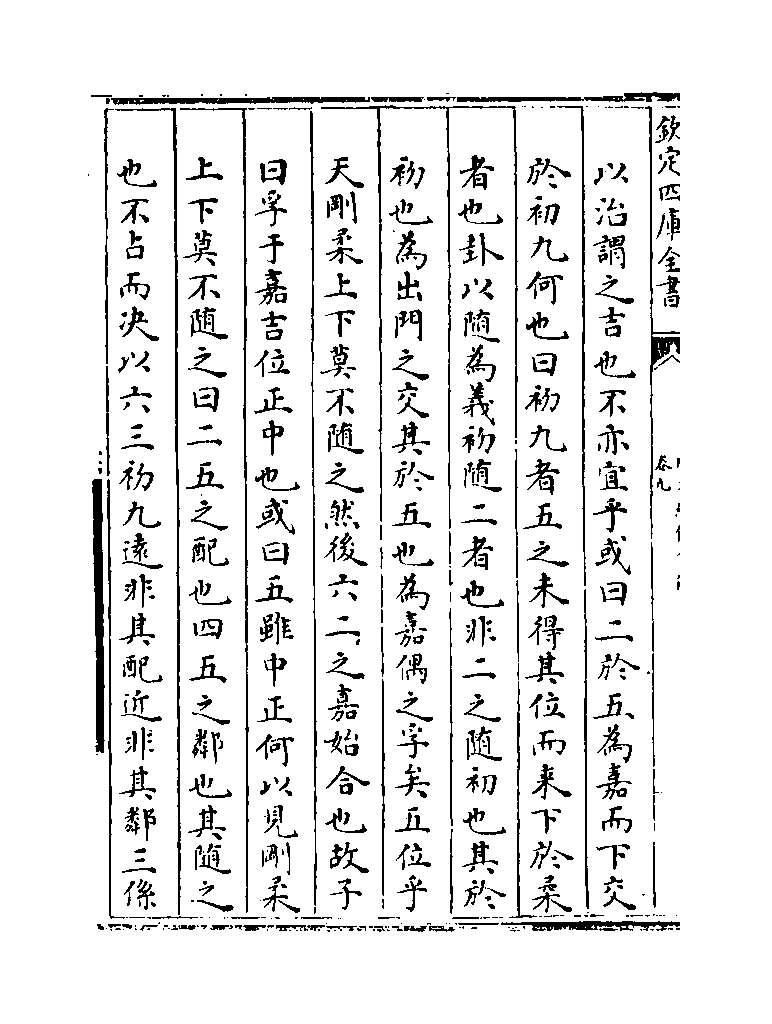 欽定四庫全書
卷九
以治謂之吉也不亦宜乎或曰二於五為嘉而下交
於初九何也曰初九者五之未得其位而来下於柔
者也卦以随為義初随二者也非二之随初也其於
初也為出門之交其於五也為嘉偶之孚矣五位乎
天剛柔上下莫不随之然後六二之嘉始合也故子
曰孚于嘉吉位正中也或曰五雖中正何以見剛柔
上下莫不随之曰二五之配也四五之鄰也其随之
也不占而决以六三初九遠非其配近非其鄰三係